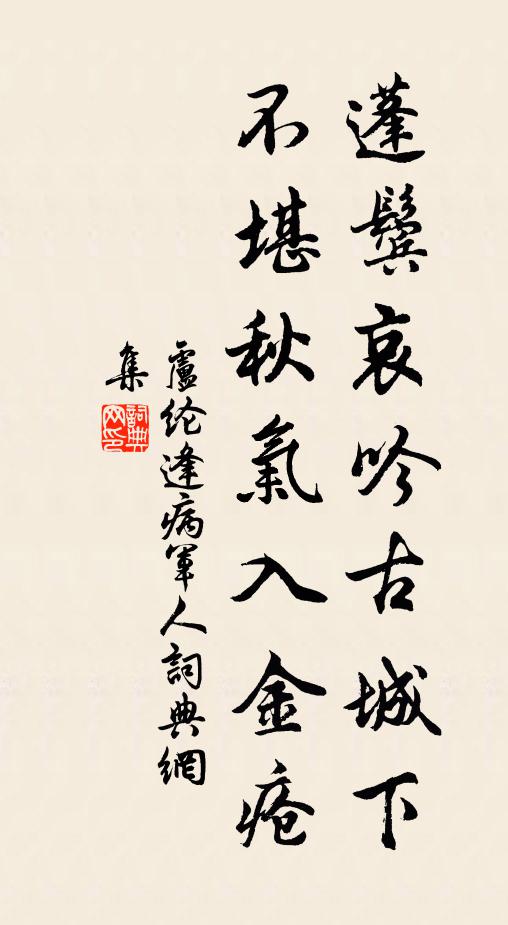 蓬鬢哀吟古城下
不堪秋氣入金瘡
盧纶逢病軍人詞典網
集
詞典网印